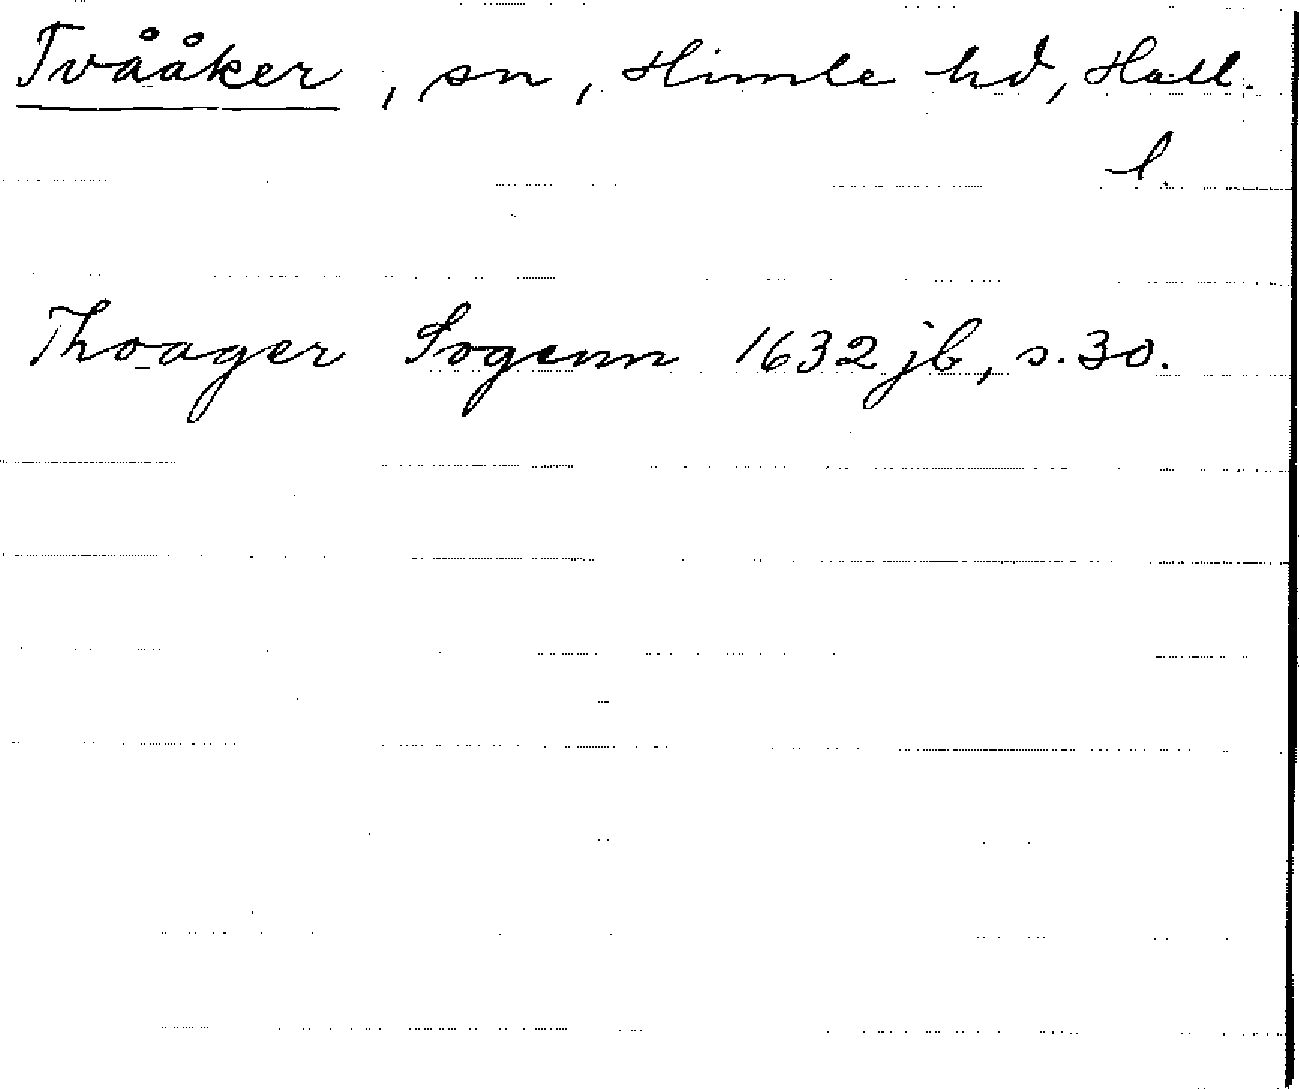 Tvååker, sn, Himle hd, Hall.
l.
Thoager Sogenn 1632 jb, s. 30.